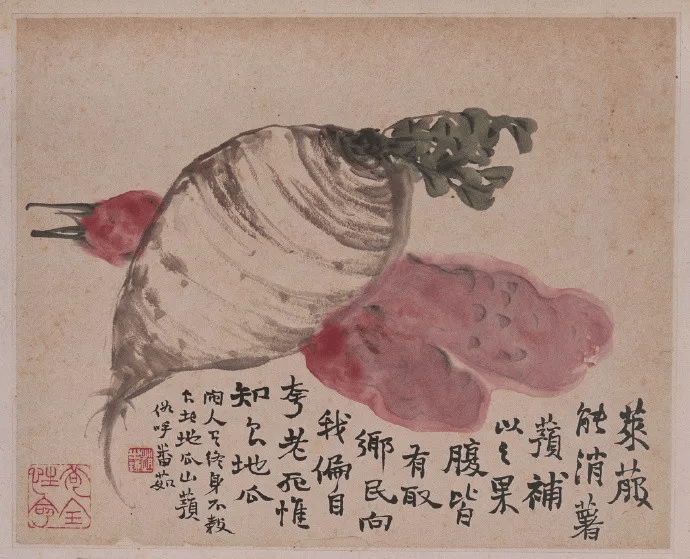 萊菔
能消薯
蕷補
以之果
腹皆
有取
鄉民向
我偏自
夸老死惟
知地瓜
人終身不穀
地瓜山蕷
俱呼番茹
苟全
性命